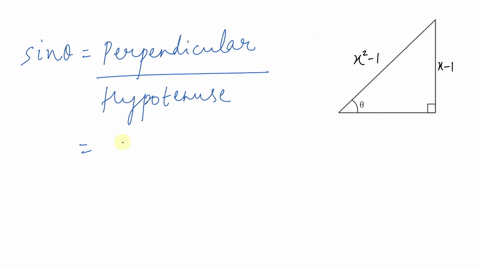 sinθ = Perpendicular
Hypotenuse
=
x²-1
x-1
θ